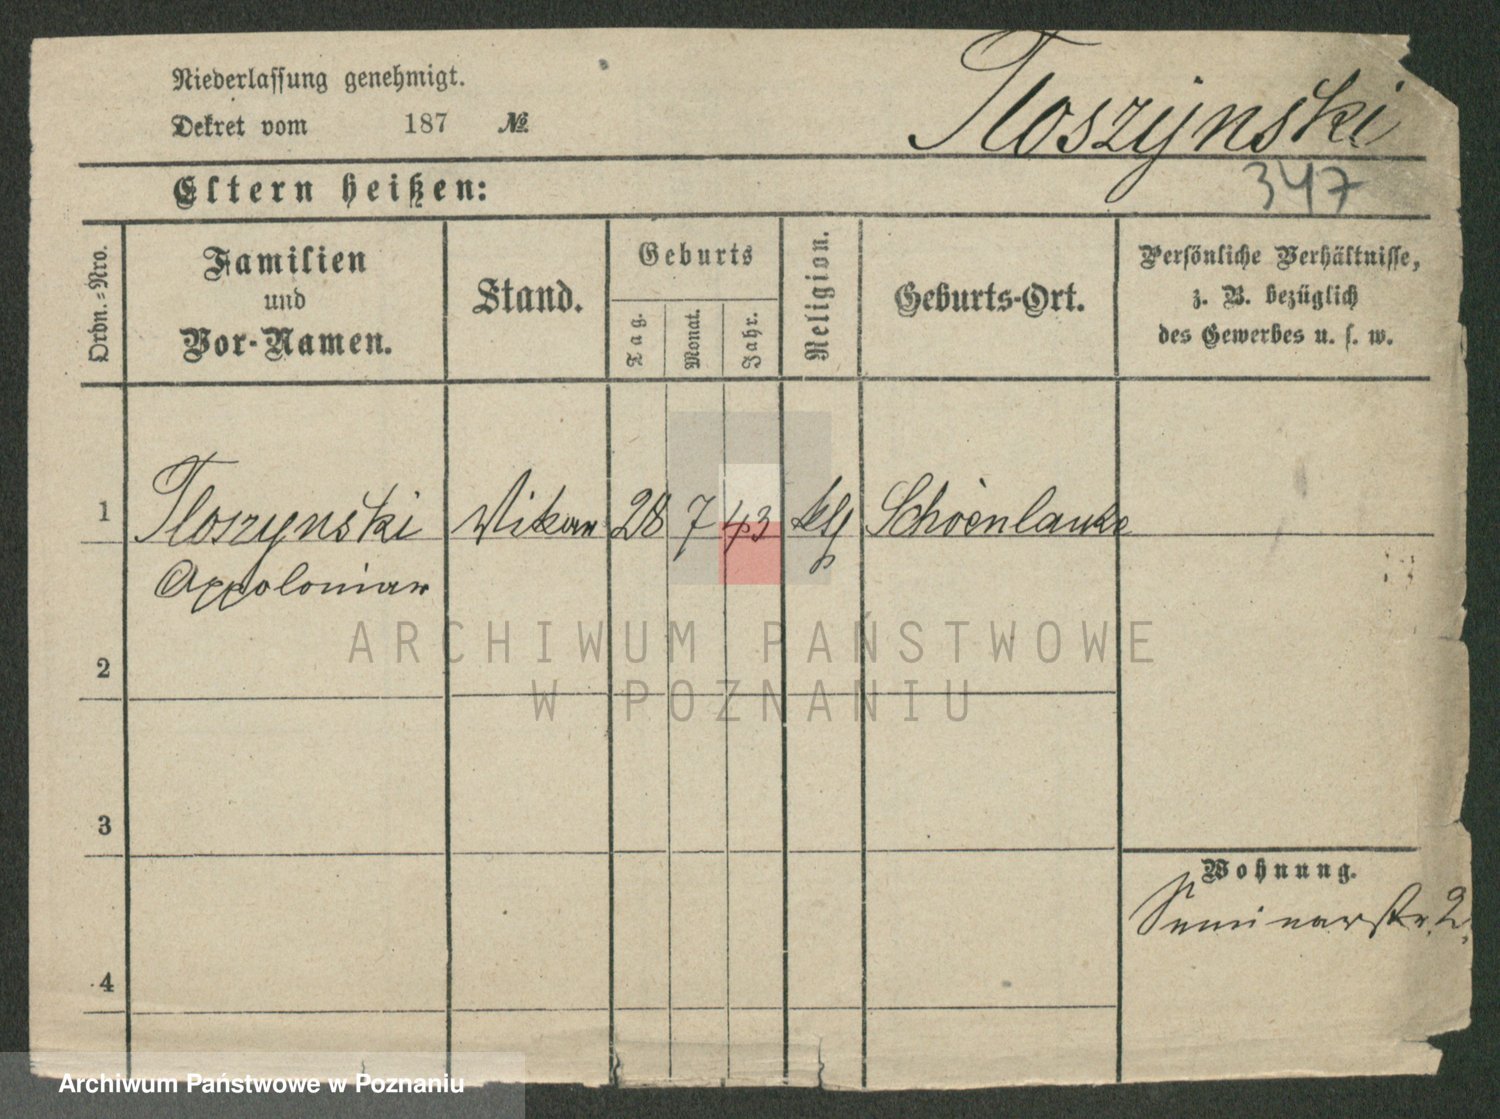 Niederlassung genehmigt.
Dekret vom 187 №
Tloszynski
347
Eltern heißen:
Ordn.-Nro.
Familien
und
Vor-Namen.
Stand.
Geburts
Tag.
Monat.
Jahr.
Religion.
Geburts-Ort.
Persönliche Verhältnisse,
z. B. bezüglich
des Gewerbes u. s. w.
1 Tloszynski Vikar 28 7 43 kth Schoenlanke
Appolinar
2
3
4
Wohnung.
Seminarstr. 2.
ARCHIWUM PAŃSTWOWE
W POZNANIU
Archiwum Państwowe w Poznaniu